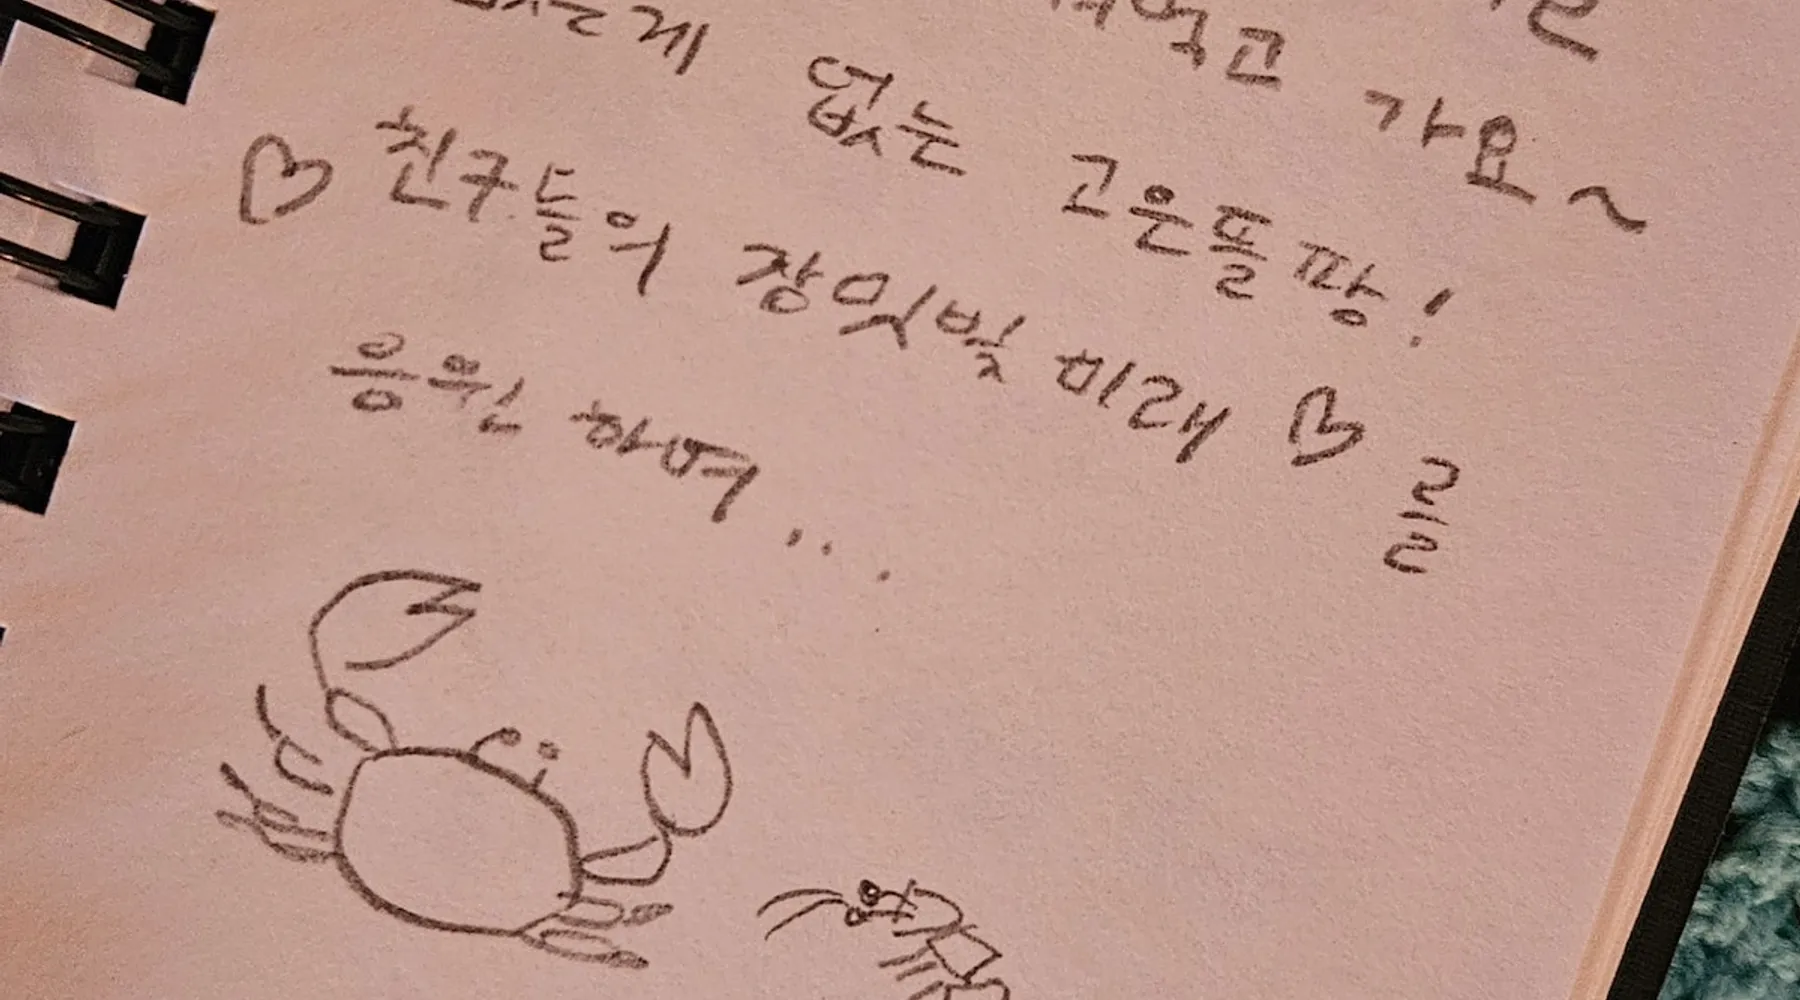 먹고 가요~
는게 없는 고은뜰 짱!
♡ 친구들의 장밋빛 미래 ♡ 를
응원하며...